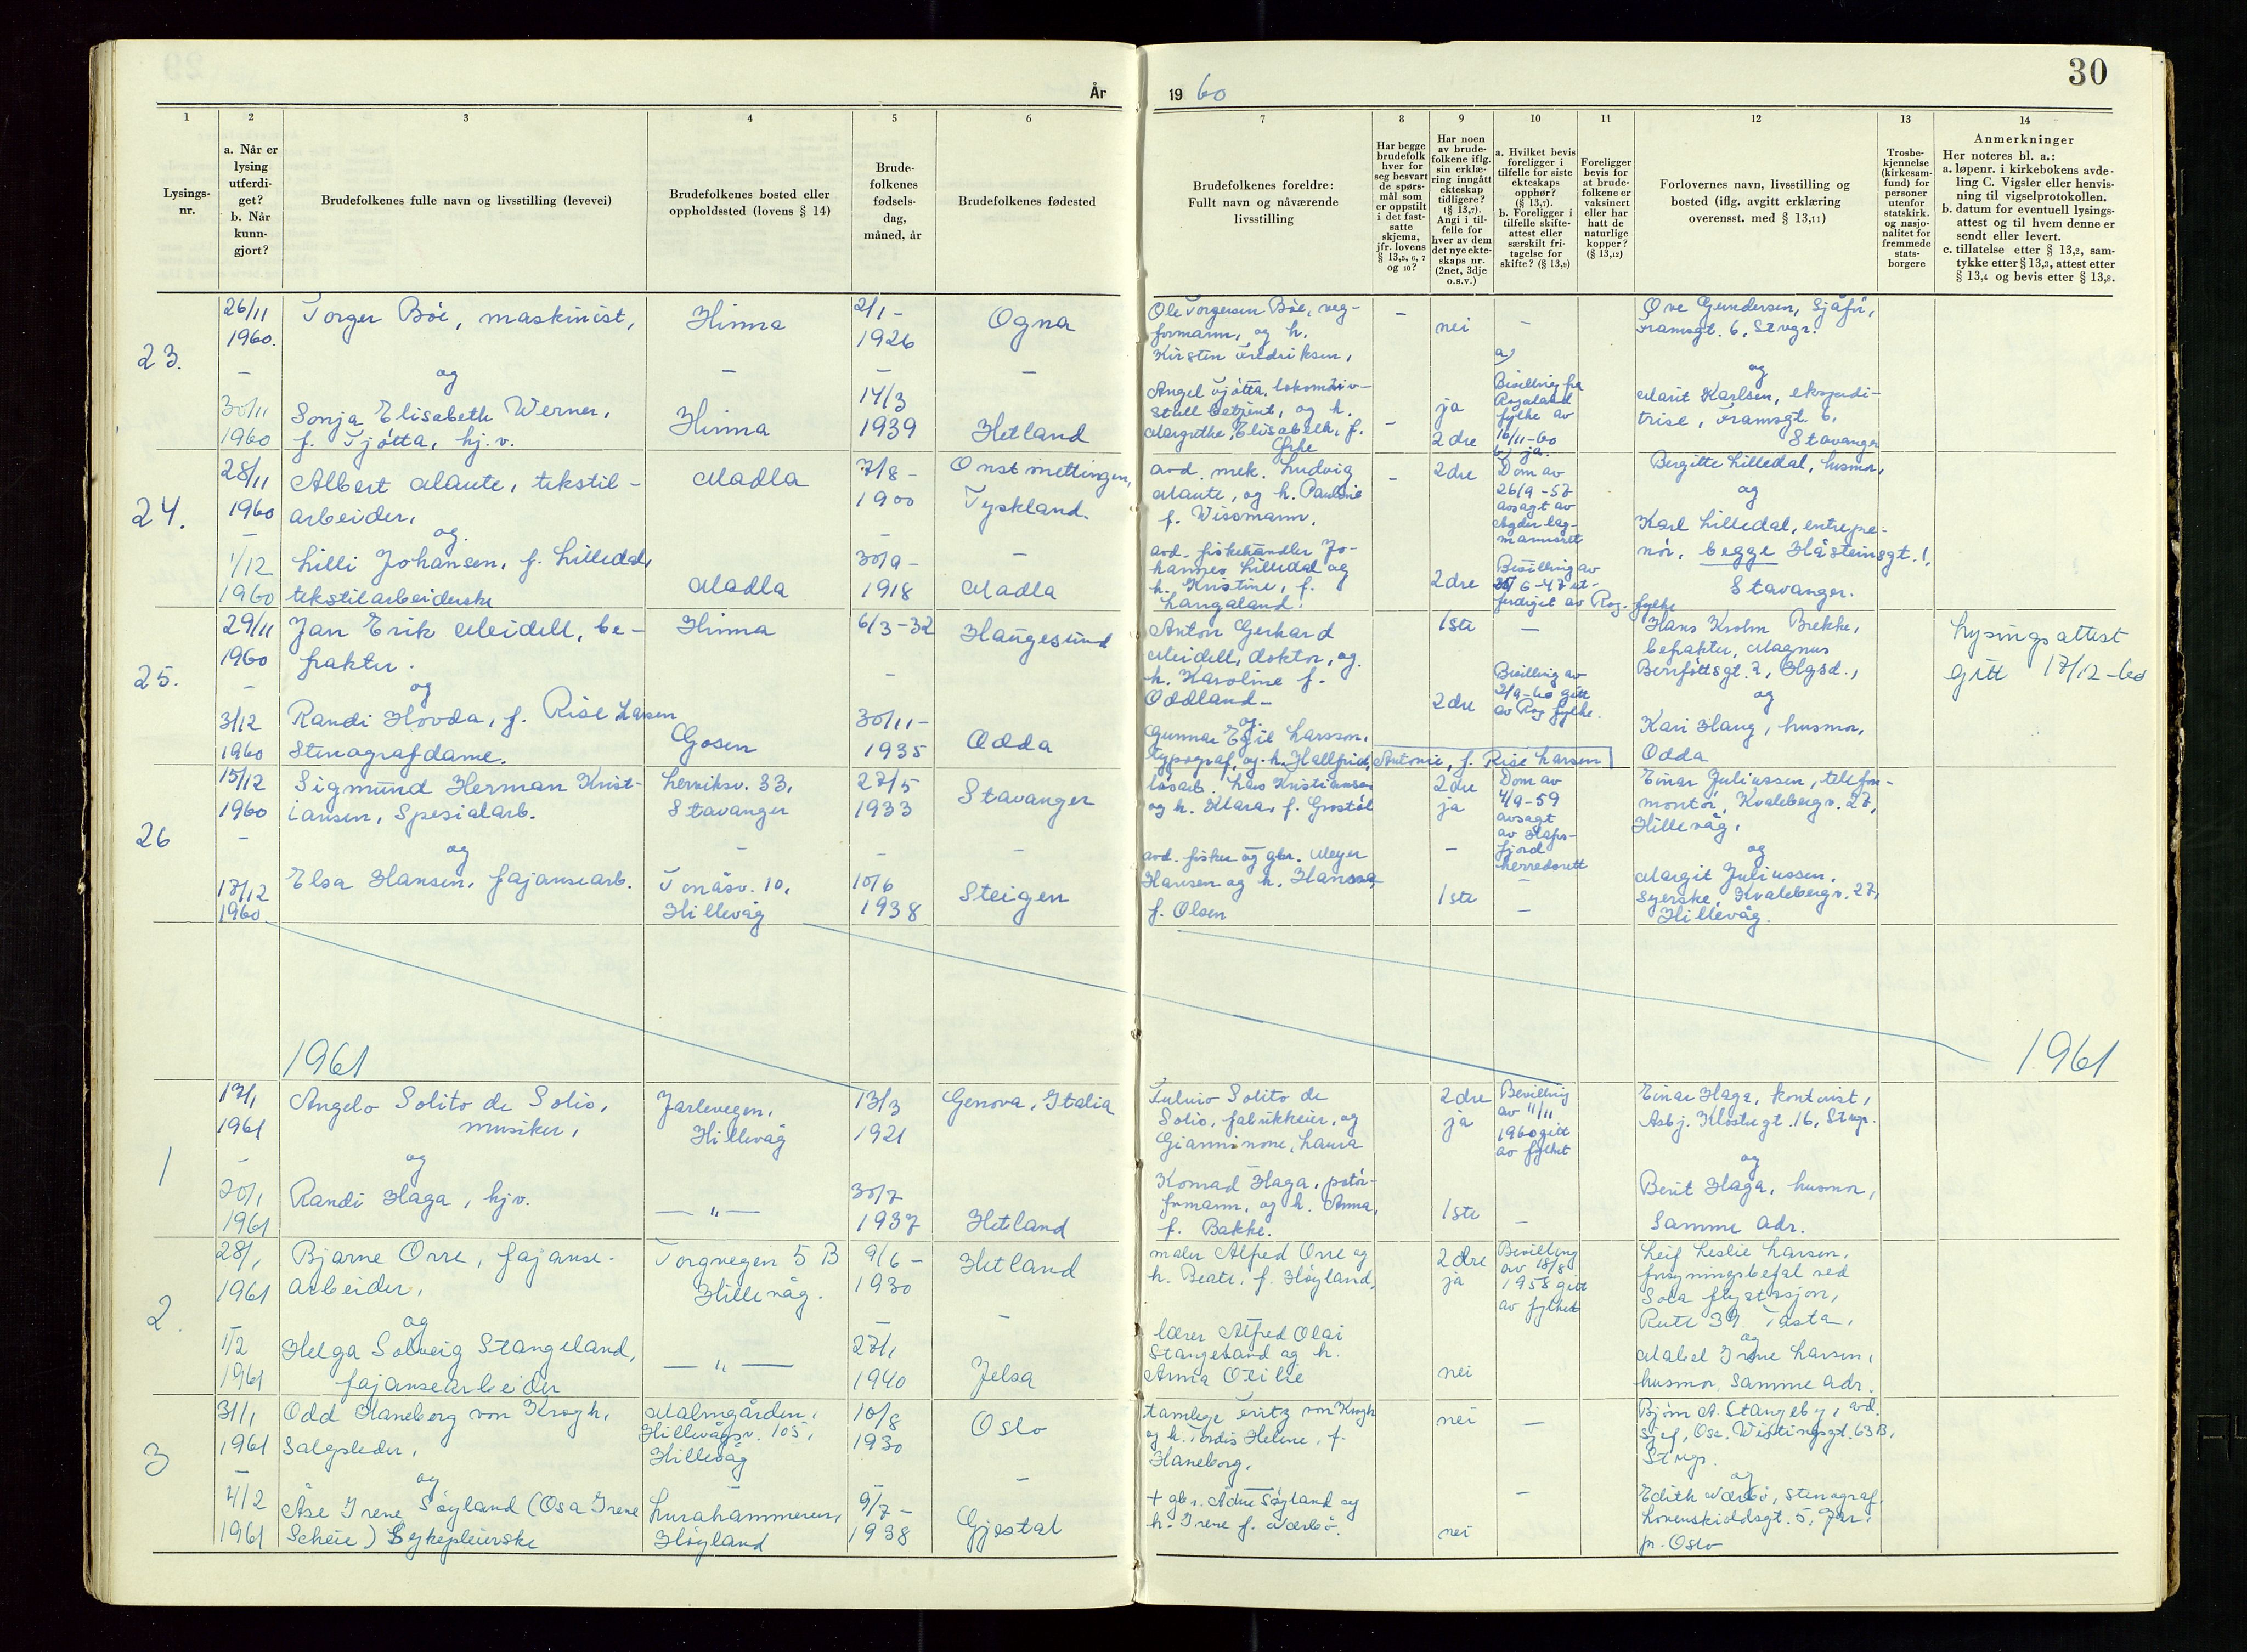 30
År
19 60
1
2
3
4
5
6
7
8
9
10
11
12
13
14
Lysings-
nr.
a. Når er
lysing
utferdi-
get?
b. Når
kunn-
gjort?
Brudefolkenes fulle navn og livsstilling (levevei)
Brudefolkenes bosted eller
oppholdssted (lovens § 14)
Brude-
folkenes
fødsels-
dag,
måned, år
Brudefolkenes fødested
Brudefolkenes foreldre:
Fullt navn og nåværende
livsstilling
Har begge
brudefolk
hver for
seg besvart
de spørs-
mål som
er oppstilt
i det fast-
satte
skjema,
jfr. lovens
§ 13,5, 6, 7
og 10?
Har noen
av brude-
folkene iflg.
sin erklæ-
ring inngått
ekteskap
tidligere?
(§ 13,7).
Angi i til-
felle for
hver av dem
det nye ekte-
skaps nr.
(2net, 3dje
o.s.v.)
a. Hvilket bevis
foreligger i
tilfelle for siste
ekteskaps
opphør?
(§ 13,7).
b. Foreligger i
tilfelle skifte-
attest eller
særskilt fri-
tagelse for
skifte? (§ 13,9)
Foreligger
bevis for
at brude-
folkene er
vaksinert
eller har
hatt de
naturlige
kopper?
(§ 13,12)
Forlovernes navn, livsstilling og
bosted (iflg. avgitt erklæring
overensst. med § 13,11)
Trosbe-
kjennelse
(kirkesam-
fund) for
personer
utenfor
statskirk.
og nasjo-
nalitet for
fremmede
stats-
borgere
Anmerkninger
Her noteres bl. a.:
a. løpenr. i kirkebokens avde-
ling C. Vigsler eller henvis-
ning til vigselprotokollen.
b. datum for eventuell lysings-
attest og til hvem denne er
sendt eller levert.
c. tillatelse etter § 13,2, sam-
tykke etter § 13,3, attest etter
§ 13,4 og bevis etter § 13,8.
23.
26/11
1960.
-
30/11
1960
Torger Bøe, maskinist,
og
Sonja Elisabeth Werner,
f. Tjøtta, hj.v.
Hinna
-
Hinna
2/1 -
1926
-
14/3
1939
Ogna
-
Hetland
Ole Torgersen Bøe, veg-
formann, og h.
Kirsten Fredriksen,
Angel Tjøtta, lokomotiv-
stall betjent, og h.
Margrethe Elisabeth, f.
-
-
nei
ja
2 dre
-
a)
Bevilling fra
Rogaland
fylke av
16/11-60
b) ja.
Ove Gundersen, Sjåfør,
Framsgt. 6, Stvgr.
og
Marit Karlsen, ekspedi-
trise, Framsgt. 6,
Stavanger
24.
28/11
1960
-
1/12
1960
Albert Maute, tekstil-
arbeider,
og
Lilli Johansen, f. Lilledal,
tekstilarbeiderske
Madla
Madla
7/8 -
1900
-
30/9 -
1918
Onstmettingen,
Tyskland.
-
Madla
avd. mek. Ludvig
Maute, og h. Pauline
f. Wissmann.
avd. fiskehandler Jo-
hannes Lilledal og
h. Kristine, f.
Langaland.
-
2 dre
2 dre
Dom av
26/9-57
avsagt av
Agder lag-
mannsrett
Bevilling av
6-47 ut-
ferdiget av Rog. fylke
Bergitte Lilledal, husmor,
og
Karl Lilledal, entrepre-
nør, begge Håsteinsgt. 1,
Stavanger.
25.
29/11
1960
-
3/12
1960
Jan Erik Meidell, be-
frakter.
og
Randi Hovda, f. Rise Larsen
Stenografdame.
Hinna
Gosen
6/3-32
-
30/11-
1935
Haugesund
Odda
Anton Gerhard
Meidell, doktor, og
h. Karoline f.
Oddland-
og
Gunnar Egil Larsson,
typograf, og h. Hallfrid, Antonie, f. Rise Larsen
1ste
2 dre
-
Bevilling av
2/9-60 gitt
av Rog fylke.
Hans Krohn Brekke,
befrakter, Magnus
Berrføttsgt. 2, Hgsd.,
og
Kari Haug, husmor,
Odda
Lysingsattest
gitt 17/12-60
26
15/12
1960
-
17/12
1960
Sigmund Herman Krist-
iansen, Spesialarb.
og
Elsa Hansen, fajansearb.
Lerviksv. 33,
Stavanger
-
Tonåsv. 10,
Hillevåg
27/5
1933
-
10/6
1938
Stavanger
-
Steigen
løsarb. Lars Kristiansen
og h. Klara, f. Grostøl
avd. fisker og gbr. Meyer
Hansen og h. Hanna,
f. Olsen
2 dre
ja
-
1 ste
Dom av
4/9-59
avsagt
av Hafs-
fjord
herredsrett
-
-
Einar Juliussen, telefon-
montør, Kvalebergv. 27,
Hillevåg,
og
Margit Juliussen,
syerske, Kvalebergv. 27,
Hillevåg.
1961
1961
1
17/1
1961
-
20/1
1961
Angelo Solito de Solis,
musiker,
og
Randi Haga, hj.v.
Jarlevegen,
Hillevåg
— " —
13/3
1921
30/7
1937
Genova, Italia
Hetland
Fulvio Solito de
Solis, fabrikkeier, og
Gianninone, Laura
Konrad Haga, postør-
formann, og h. Anna,
f. Bakke.
2 dre
ja
1 ste
Bevilling
av 11/11
1960 gitt
av fylket
-
Einar Haga, kontorist,
Asbj. Klostergt. 16, Stvgr.
og
Berit Haga, husmor,
Samme adr.
2.
28/1
1961
-
1/2
1961
Bjarne Orre, fajanse-
arbeider,
og
Helga Solveig Stangeland,
fajansearbeider
Torgvegen 5 B
Hillevåg.
— " —
9/6 -
1930
-
27/1
1940
Hetland
-
Jelsa
maler Alfred Orre og
h. Beate, f. Høyland,
lærer Alfred Olai
Stangeland og h.
Anna Otilie
2 dre
ja
nei
Bevilling
av 18/8
1958 gitt
av fylket
Leif Leslie Larsen,
forsyningsbefal ved
Sola flystasjon,
Rute 39 Tasta,
og
Mabel Irene Larsen,
husmor, Samme adr.
3
31/1
1961
-
4/2
1961
Odd Haneborg von Krogh,
Salgsleder,
og
Åse Irene Søyland (Osa Irene
Scheie) Sykepleierske
Malmgården,
Hillevågsv. 105,
Hillevåg
-
Lurahammeren,
Høyland
10/8
1930
9/7 -
1938
Oslo
-
Gjestal
tannlege Fritz von Krogh
og h. Tordis Helene, f.
Haneborg.
+ gbr. Adne Søyland og
h. Irene f. Nærbø.
nei
nei
-
-
Bjørn A. Stangeby, avd.
sjef, Osc. Wistingsgt. 63 B,
Stvgr.
og
Edith Nærbø, Stenograf,
Lovenskioldsgt. 5, Jar
pr. Oslo